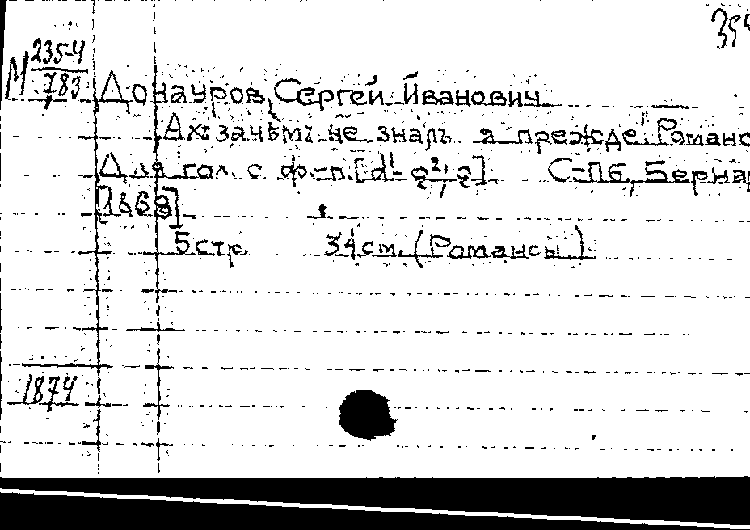 М 235-4
783
Донауров, Сергей Иванович
Ахъ зачѣмъ не зналъ я прежде. Романс
Для гол. с ф.-п. [d¹- g²; g] С-Пб, Бернар
[1868]
5 стр. 34 см. (Романсы)
1874